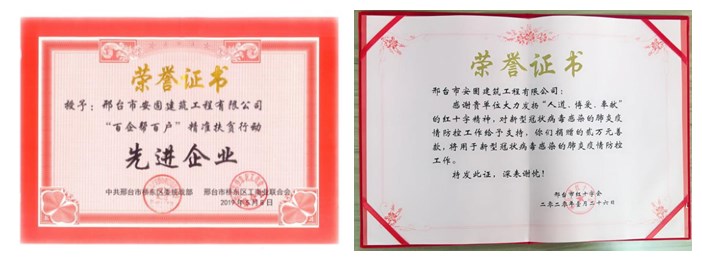 荣誉证书
授予：邢台市安固建筑工程有限公司
“百企帮百户”精准扶贫行动
先进企业
中共邢台市桥东区委统战部 邢台市桥东区工商业联合会
2019年5月8日
荣誉证书
邢台市安固建筑工程有限公司：
感谢贵单位大力发扬“人道、博爱、奉献”
的红十字精神，对新型冠状病毒感染的肺炎疫
情防控工作给予支持，你们捐赠的贰万元善
款，将用于新型冠状病毒感染的肺炎疫情防控
工作。
特发此证，深表谢忱！
邢台市红十字会
二零二零年壹月二十六日